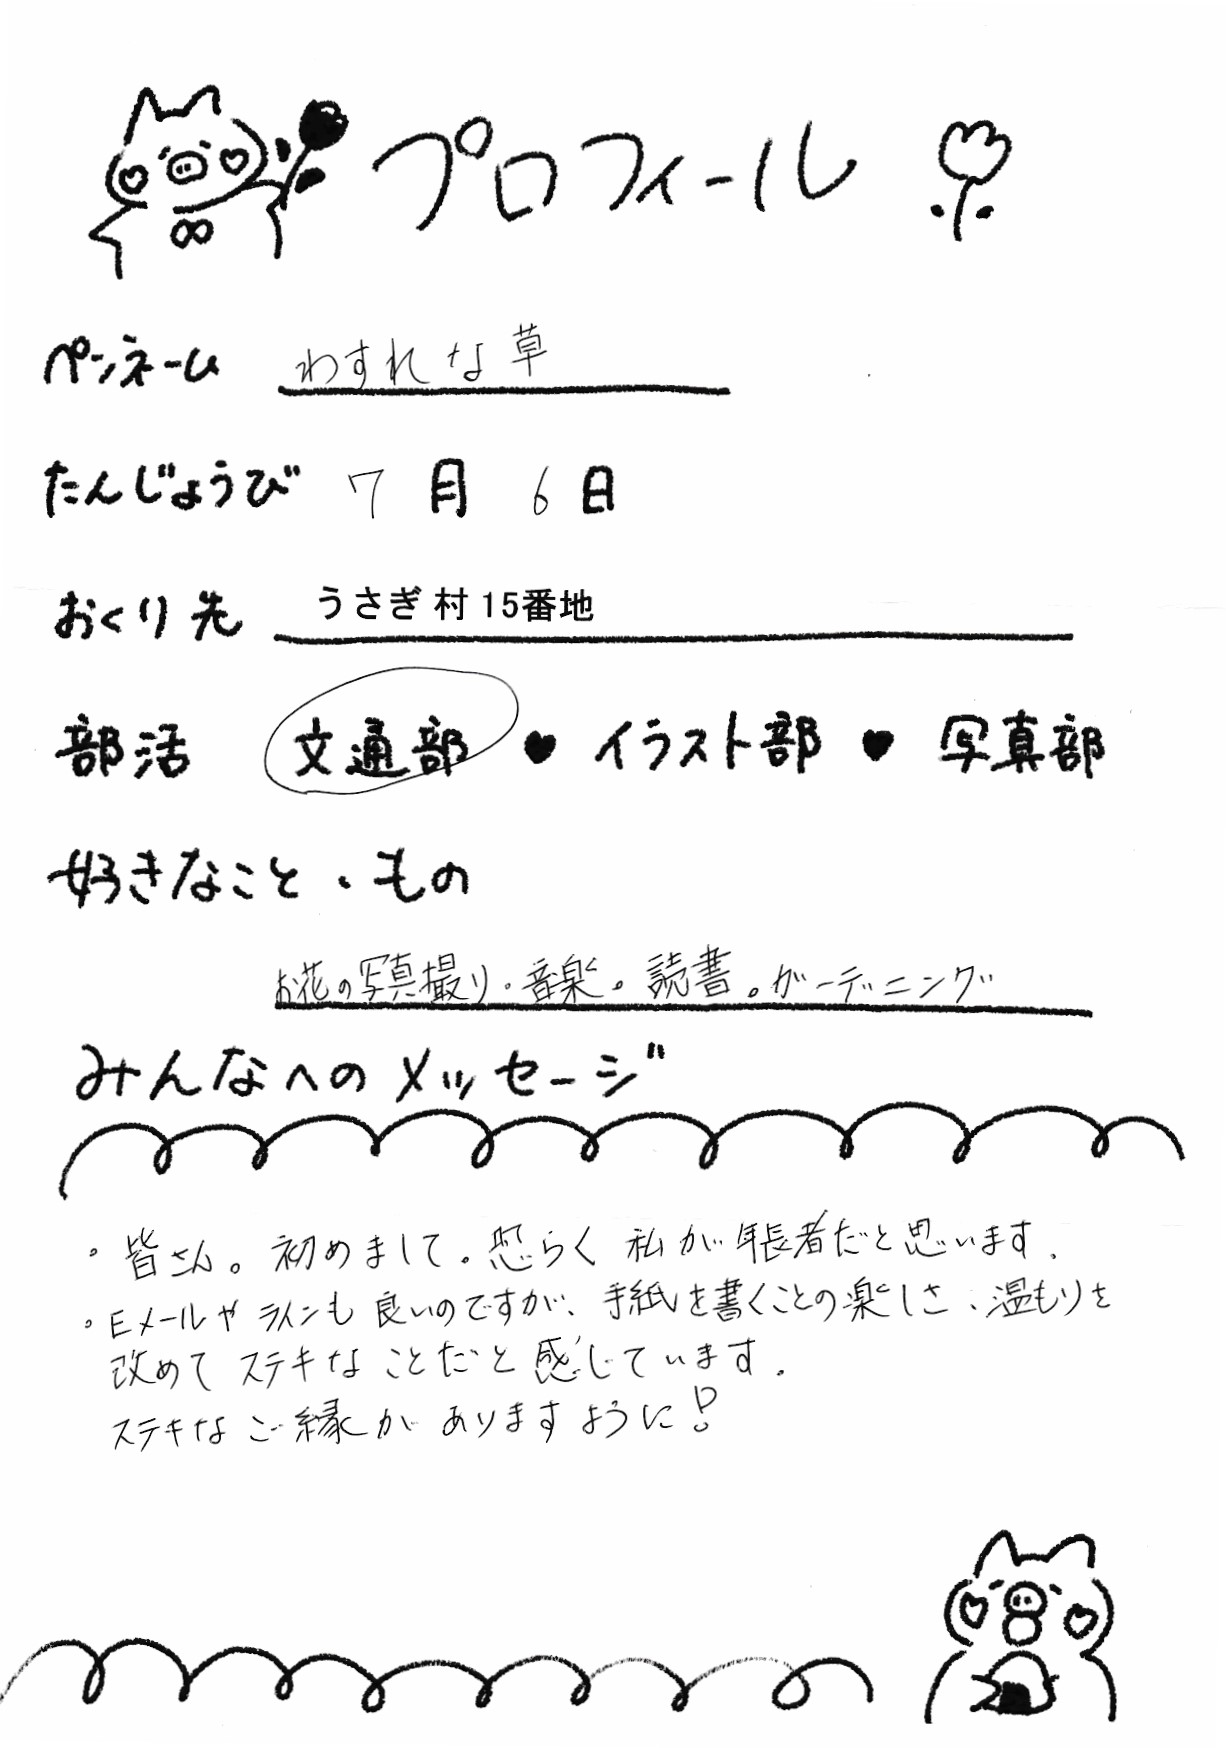 プロフィール
ペンネーム わすれな草
たんじょうび 7月 6日
おくり先 うさぎ村 15番地
部活 文通部 ♥ イラスト部 ♥ 写真部
好きなこと、もの
お花の写真撮り。音楽。読書。ガーデニング
みんなへのメッセージ
。皆さん。初めまして。恐らく私が年長者だと思います。
。Eメールやラインも良いのですが、手紙を書くことの楽しさ、温もりを
改めてステキなことだと感じています。
ステキなご縁がありますように!